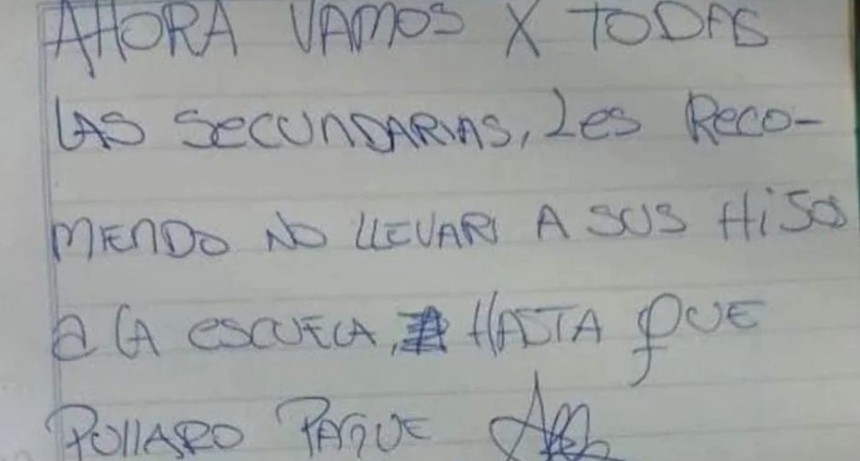 AHORA VAMOS X TODAS
LAS SECUNDARIAS, LES RECO-
MENDO NO LLEVAR A SUS HIJOS
a LA ESCUELA, HASTA QUE
PULLARO PAGUE